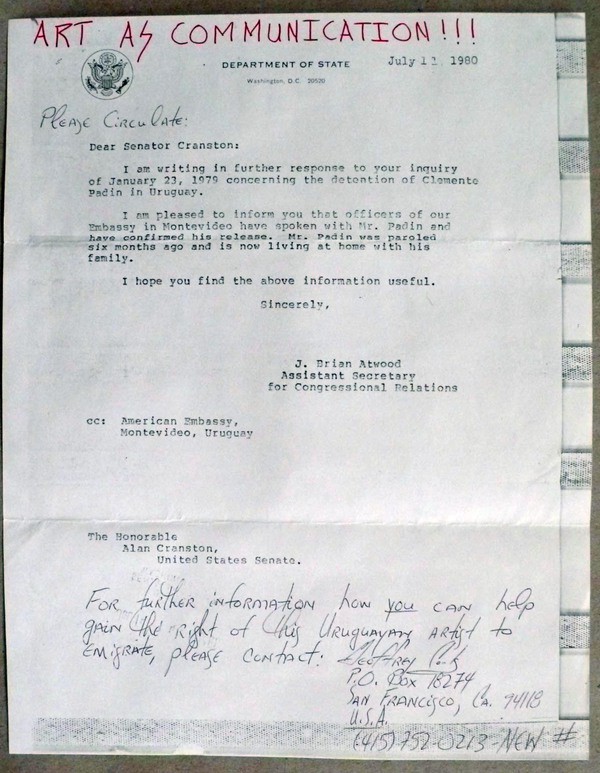 ART AS COMMUNICATION!!!
DEPARTMENT OF STATE
July 11 1980
Washington, D.C. 20520
Please Circulate:
Dear Senator Cranston:
I am writing in further response to your inquiry
of January 23, 1979 concerning the detention of Clemente
Padin in Uruguay.
I am pleased to inform you that officers of our
Embassy in Montevideo have spoken with Mr. Padin and
have confirmed his release. Mr. Padin was paroled
six months ago and is now living at home with his
family.
I hope you find the above information useful.
Sincerely,
J. Brian Atwood
Assistant Secretary
for Congressional Relations
cc: American Embassy,
Montevideo, Uruguay
The Honorable
Alan Cranston,
United States Senate.
For further information how you can help
gain the right of this Uruguayan artist to
emigrate, please contact: Geoffrey Cook
P.O. Box 18274
San Francisco, Ca. 94118
U.S.A.
(415) 752-0213-NEW #